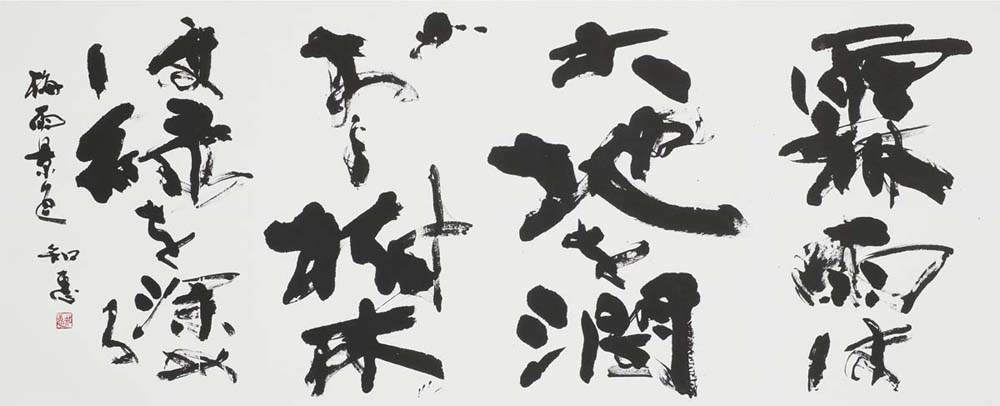 霖雨は
大地を潤
おし樹木
は緑を深める
梅雨景色 知恵